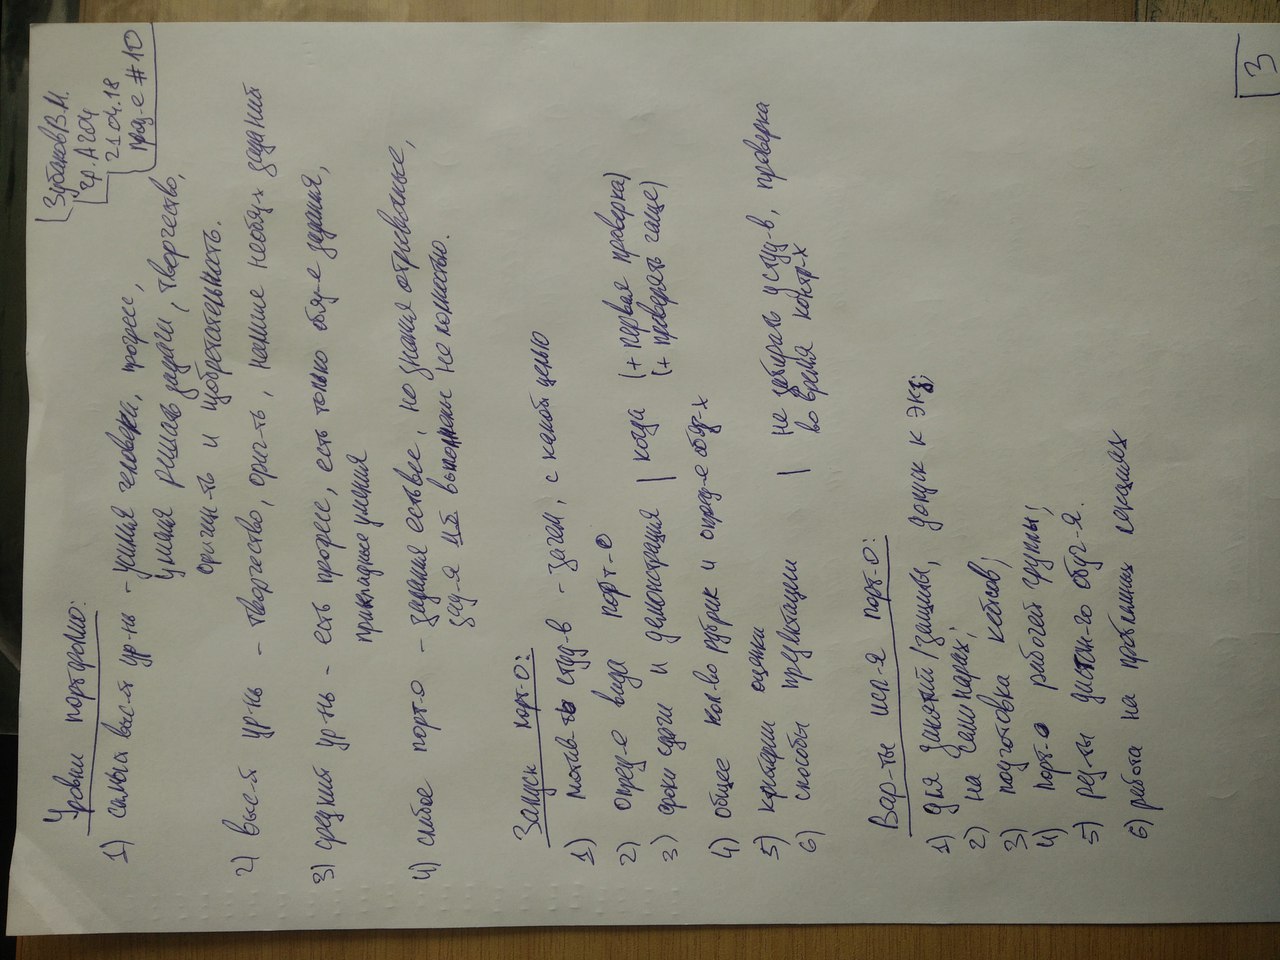 Зубаков В.М.
гр. А204
21.04.18
# 10
Уровни портфолио:
1) самый выс-й ур-нь - усилия человека, прогресс,
умения решать задачи, творчество,
оригин-ть и изобретательность.
2) выс-й ур-нь - творчество, ориг-ть, наличие необяз-х заданий
3) средний ур-нь - есть прогресс, есть только обяз-е задания,
прикладные умения
4) слабое порт-о - задания есть все, но знания отрывочные,
зад-я м.б. выполнены не полностью.
Запуск порт-о:
1) мотив-ть студ-в - зачем, с какой целью
2) опред-е вида порт-о
3) сроки сдачи и демонстрация | когда (+ первая проверка)
(+ проверять чаще)
4) общее кол-во рубрик и опред-е обяз-х
5) критерии оценки
6) способы презентации | не забирать у студ-в, проверка
во время контр-х
Вар-ты исп-я порт-о:
1) для занятий/защиты, допуск к экз;
2) на семинарах;
3) подготовка кейсов;
4) порт-о рабочей группы;
5) рез-ты дистан-го обуч-я.
6) работа на проблемных лекциях
3